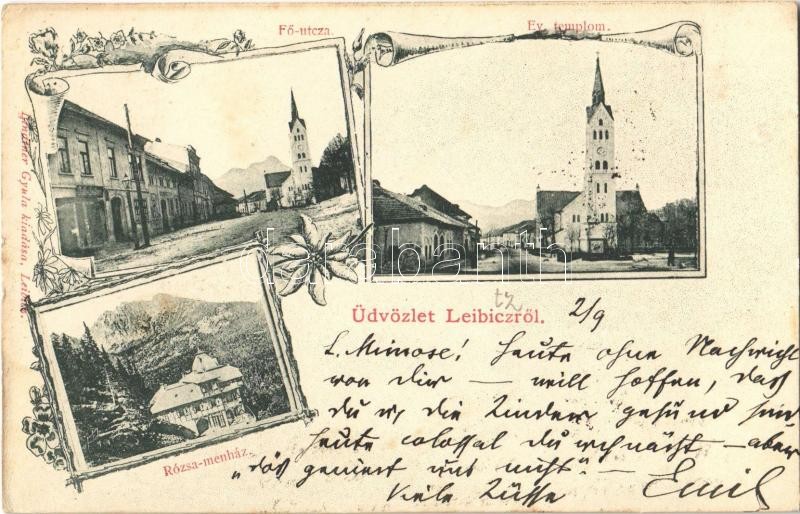 Fő-utcza.
Ev. templom.
Gyula kiadása,
Rózsa-menház.
darabanth
tz
Üdvözlet Leibiczről. 2/9
L. Mimose! Heute ohne Nachricht
von dir — will hoffen, daß
du u. die Kinder gesund sind
heute colossal — aber
"das geniert uns nicht." — Emil
Viele Küsse